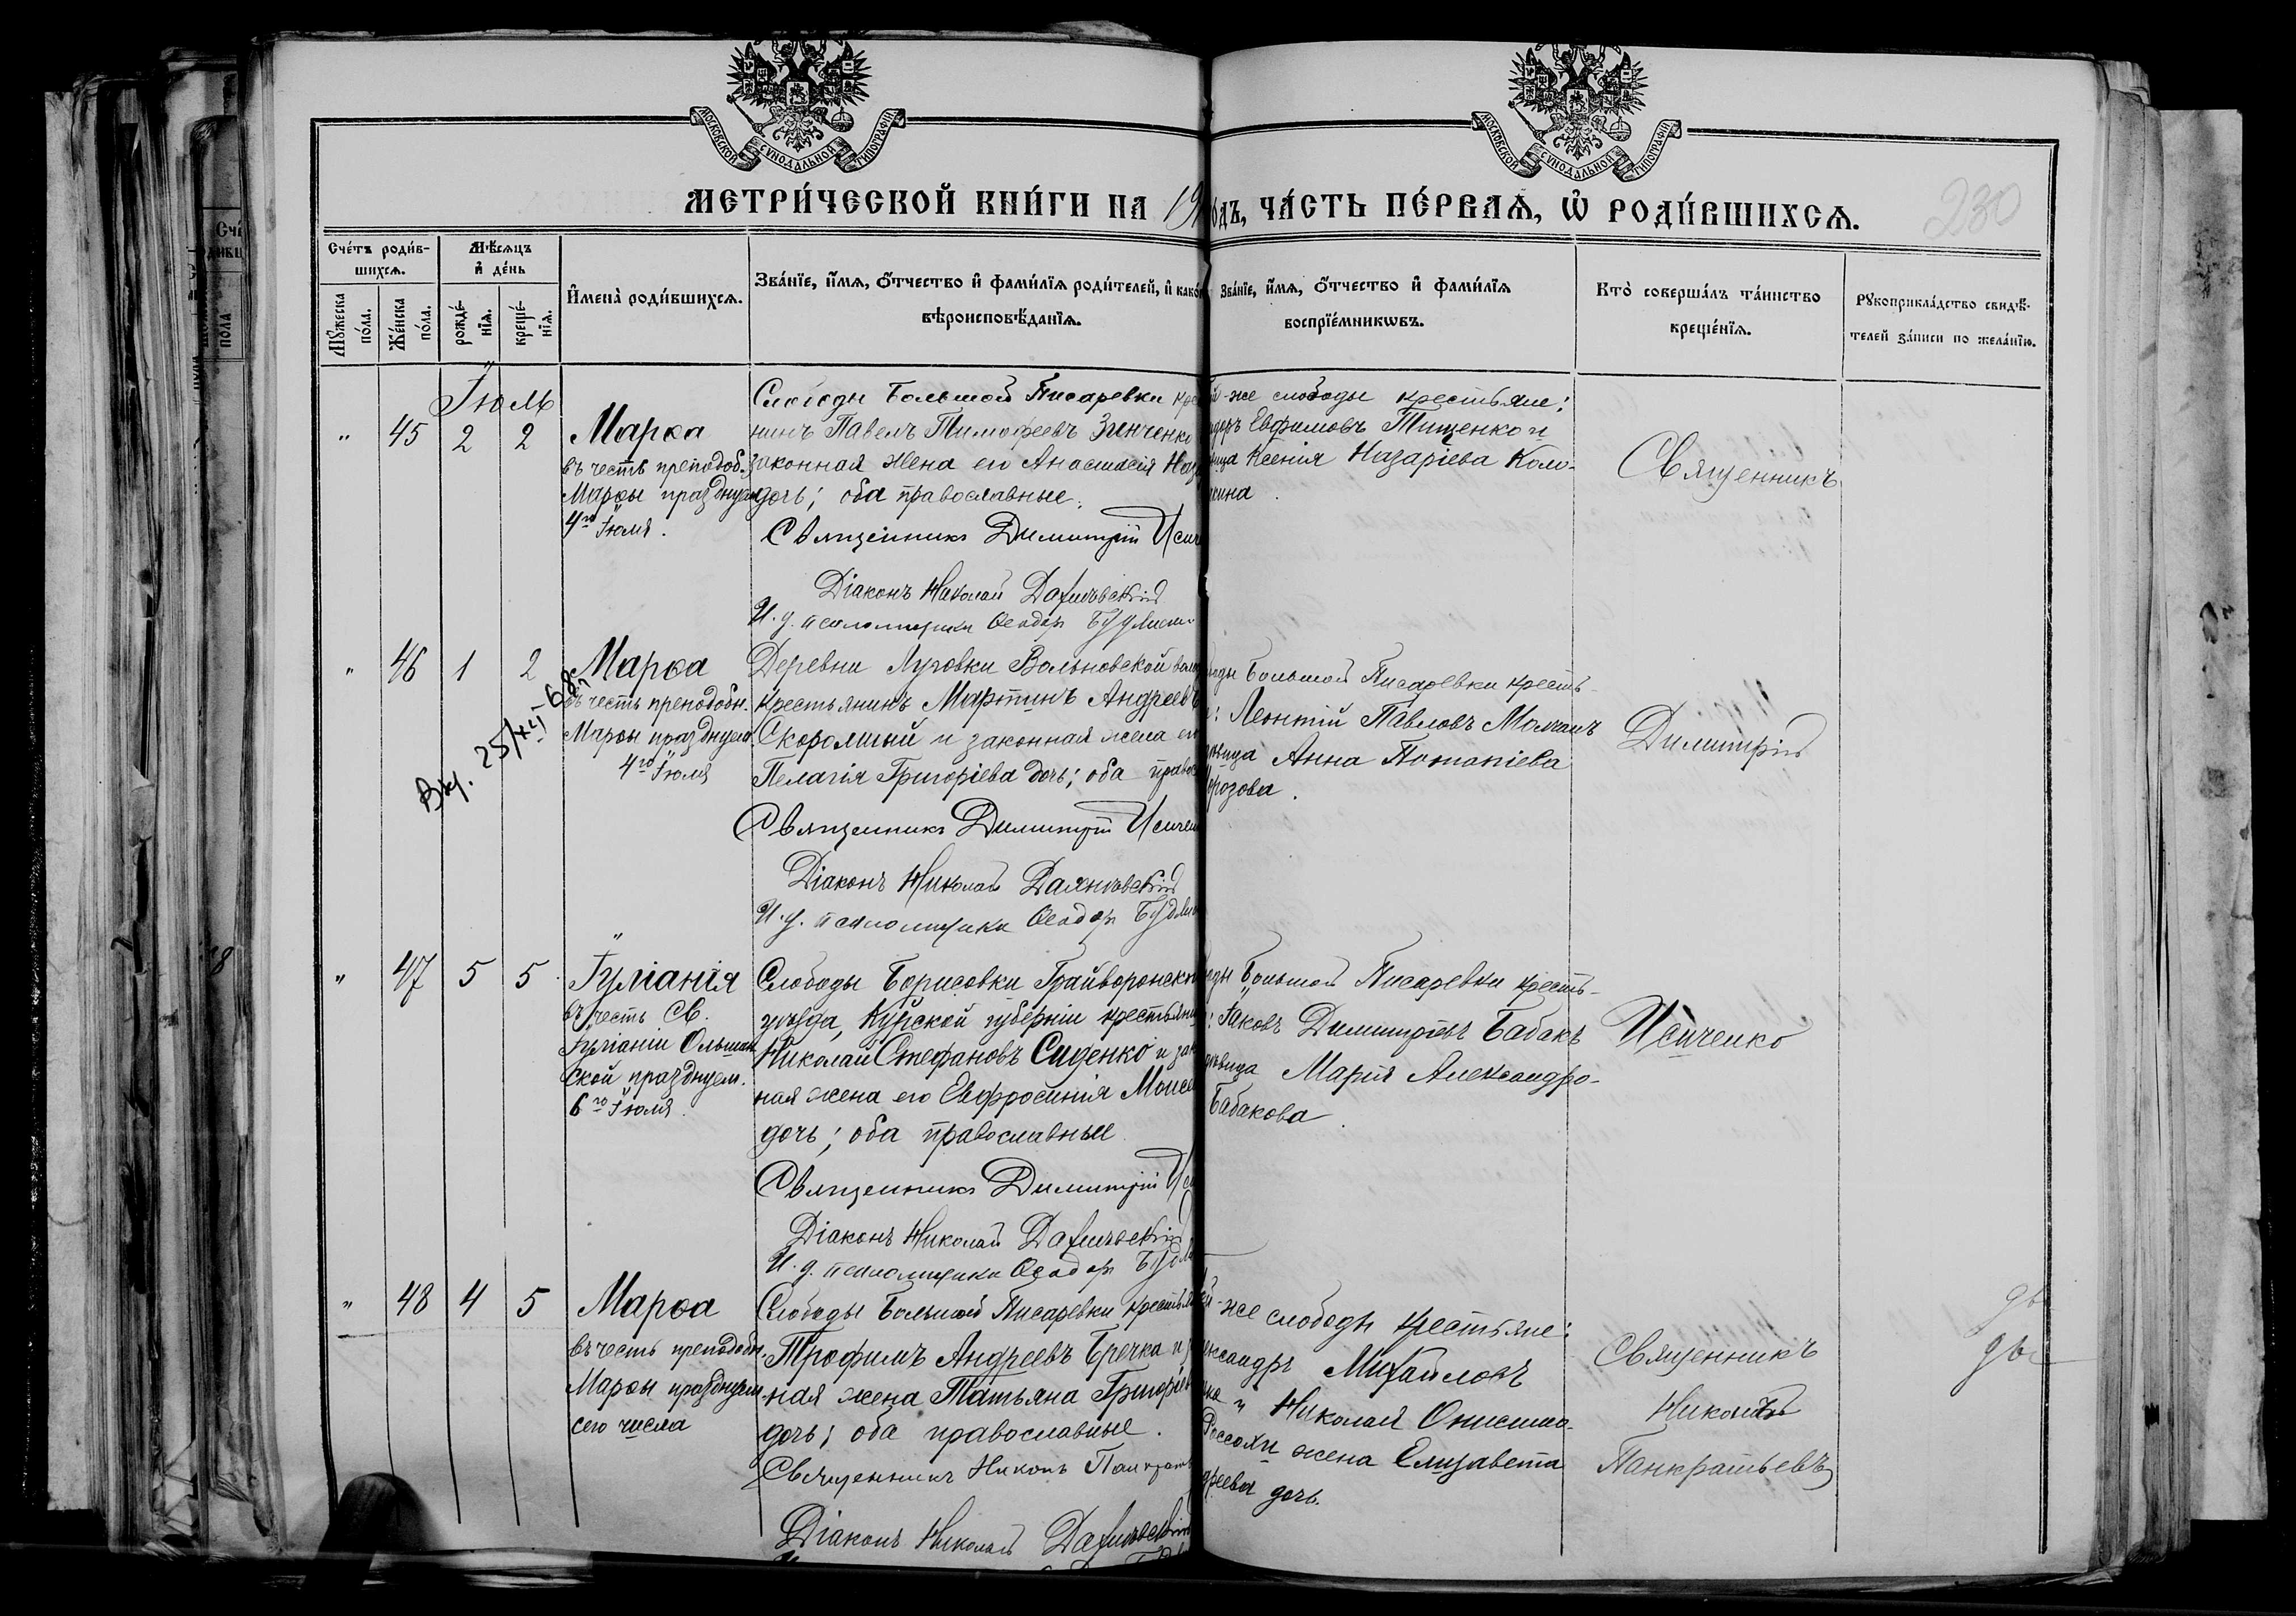 МОСКОВСКОЙ СУНОДАЛЬНОЙ ТИПОГРАФІИ
МОСКОВСКОЙ СУНОДАЛЬНОЙ ТИПОГРАФІИ
МЕТРИ́ЧЕСКОЙ КНИ́ГИ НА 19
ОДЪ, ЧА́СТЬ ПЕ́РВАѦ, Ѡ҆ РОДИ́ВШИХСѦ.
230
Сче́тъ роди́в-
шихсѧ.
Мꙋ́жеска по́ла.
Же́нска по́ла.
Мѣ́сѧцъ
и҆ де́нь
рожде́-
нїѧ.
креще́-
нїѧ.
И҆мена̀ роди́вшихсѧ.
Зва́нїе, и҆́мѧ, ѻ҆́тчество и҆ фами́лїѧ роди́телей, и҆ како́
вѣроисповѣ́данїѧ.
Зва́нїе, и҆́мѧ, ѻ҆́тчество и҆ фами́лїѧ
воспрїе́мникѡвъ.
Кто̀ соверша́лъ та́инство
креще́нїѧ.
Рꙋкоприкла́дство свидѣ́-
телей за́писи по жела́нїю.
Іюль
" 45 2 2
Марѳа
въ честь преподоб.
Марѳы празднуем
4го Іюля.
Слободы Большой Писаревки кре
нинъ Павелъ Тимофеевъ Зинченко
законная жена его Анастасія Наза
дочь; оба православные.
Священникъ Димитрій Исиче
Діаконъ Николай
И. д. псаломщика Ѳеодор
й-же слободы крестьяне:
доръ Евфимовъ Тищенко и
вица Ксенія Назаріева Коло-
сина.
Священникъ
" 46 1 2
Марѳа
въ честь преподобн.
Марѳы празднуем
4го Іюля
25/XII-68г
Деревни Луговки Вольновской воло
крестьянинъ Мартинъ Андреевъ
Скоромный и законная жена его
Пелагія Григоріева дочь; оба правос
Священникъ Димитрій Исичен
Діаконъ Николай
И. д. псаломщика Ѳеодор
оды Большой Писаревки кресть-
: Леонтій Павловъ Молчанъ
вица Анна Потапіева
орозова.
Димитрій
" 47 5 5
Іуліанія
въ честь Св.
Іуліаніи Ольшан
ской празднуем.
6го Іюля.
Слободы Борисовки Грайворонско
уѣзда, Курской губерніи крестьяни
Николай Стефановъ Сиденко и зак
ная жена его Евфросинія Моисе
дочь; оба православные
Священникъ Димитрій Ис
Діаконъ Николай
И. д. псаломщика Ѳеодор
оды Большой Писаревки кресть-
: Іаковъ Димитріевъ Бабакъ
дѣвица Марія Александро-
Бабакова.
Исиченко
" 48 4 5
Марѳа
въ честь преподобн.
Марѳы празднуем
сего числа
Слободы Большой Писаревки крестья
Трофимъ Андреевъ Гречка и з
ная жена Татьяна Григоріев
дочь; оба православные.
Священникъ Никонъ Панкрат
Діаконъ Николай
й-же слободы крестьяне:
ександръ Михайловъ
ка и Николая Онисимо-
Россохи жена Елизавета
дреева дочь.
Священникъ
Никонъ
Панкратьевъ